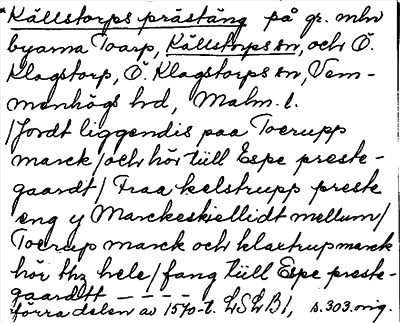 Källstorps prästäng på gr. mlw
byarna Toarp, Källstorps sn, och Ö.
Klagstorp, Ö. Klagstorps sn, Vem-
menhögs hd, Malm. l.
/Jordt liggendis paa Toerupp
marck/och hör till Espe preste-
gaardt/ Fraa kelstrupp preste
eng y Marckeskiellidt mellum/
Toerup marck och klachrup marck
hör thz hele/fang till Espe preste-
gaardtt - - - -
förra delen av 1570-t. LSLB1, s. 303. orig.